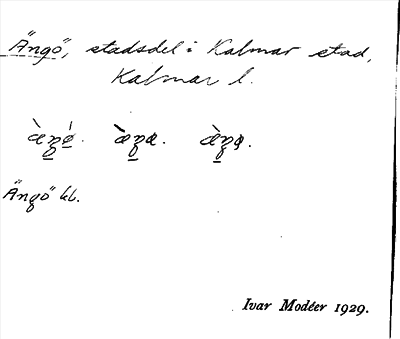 "Ängö", stadsdel i Kalmar stad,
Kalmar l.
"Ängö" kl.
Ivar Modéer 1929.